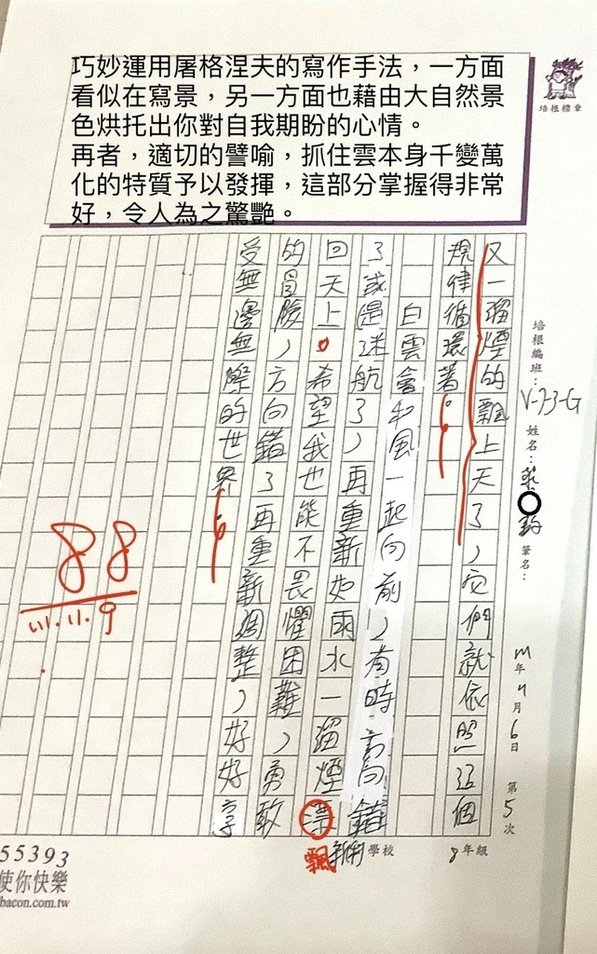 巧妙運用屠格涅夫的寫作手法，一方面
看似在寫景，另一方面也藉由大自然景
色烘托出你對自我期盼的心情。
再者，適切的譬喻，抓住雲本身千變萬
化的特質予以發揮，這部分掌握得非常
好，令人為之驚艷。
培根標章
培根編班：V-73-G 姓名： 筆名：
年 11月6日 第5次
又一溜煙的飄上天了，它們就依照這個
規律循環著。
白雲會和風一起向前，有時方向錯
了或是迷航了，再重新如雨水一溜煙漂
回天上。希望我也能不畏懼困難，勇敢
的冒險，方向錯了再重新調整，好好享
受無邊無際的世界。
飄
學校 8年級
88
111.11.9
55393
使你快樂
bacon.com.tw